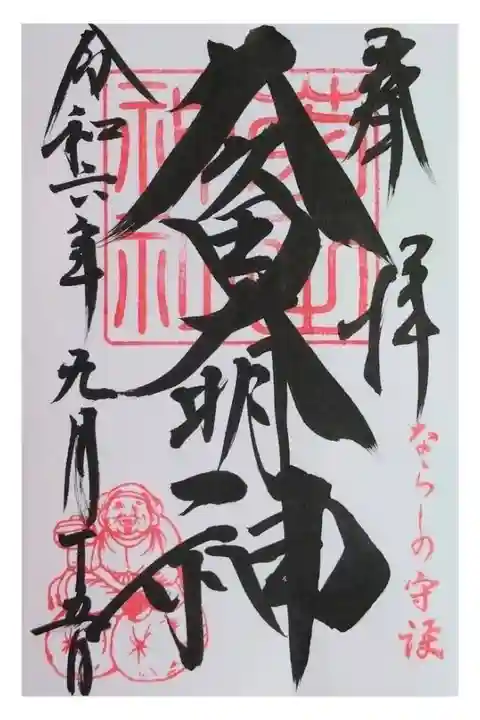 奉拝
ならしの守護
久々田大明神
令和六年九月十五日